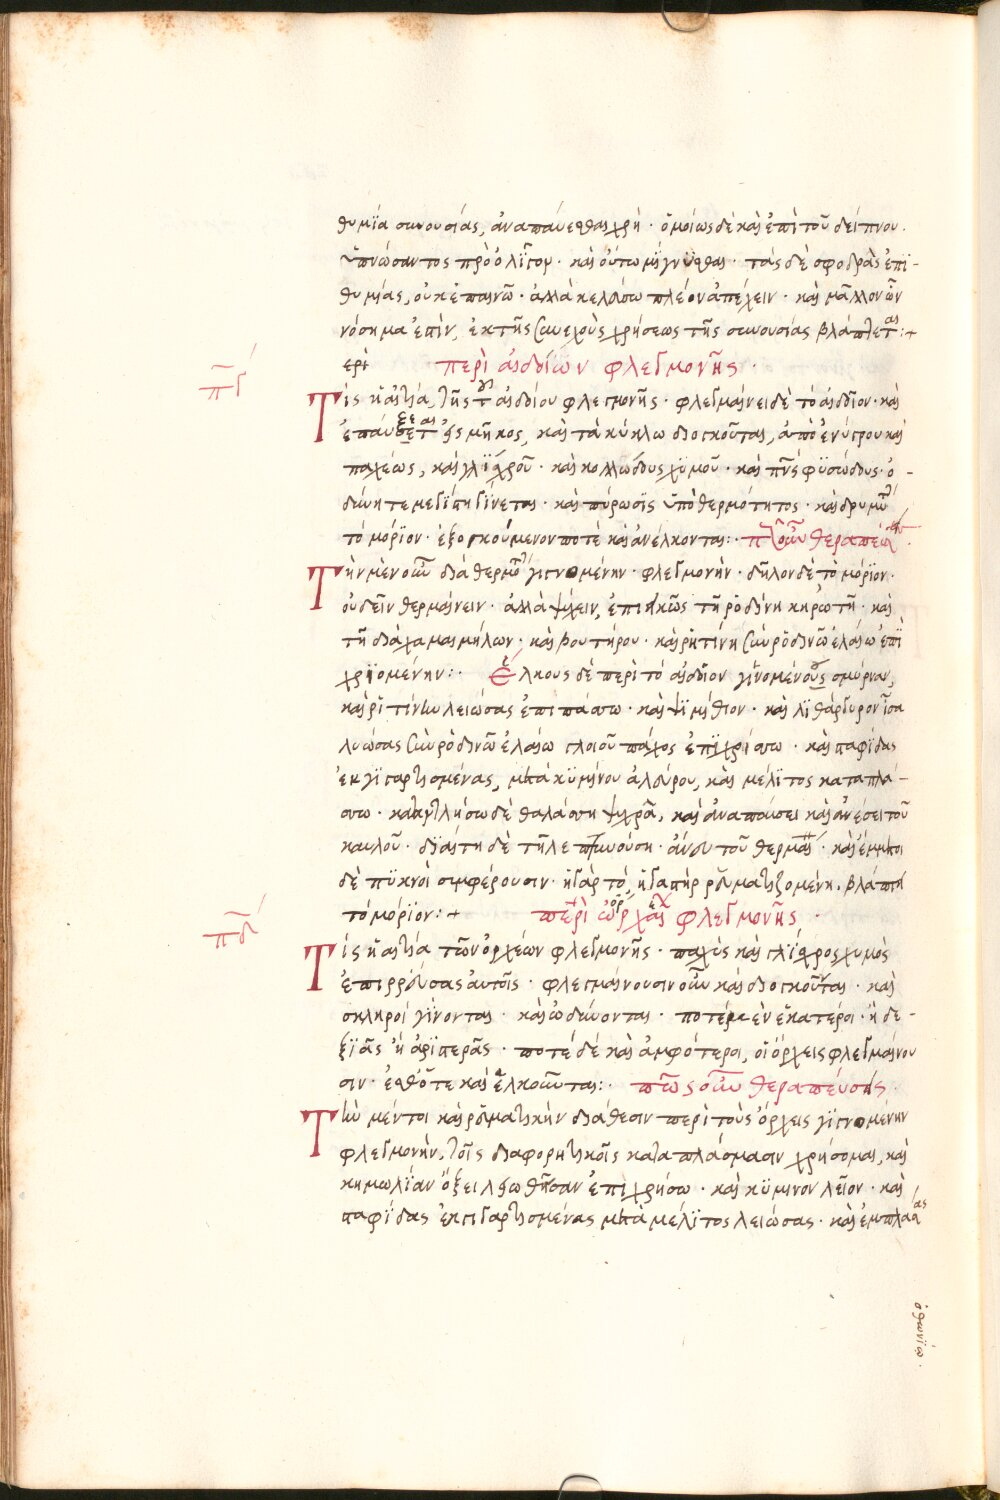 θυμία συνουσίας, ἀναπαύεσθαι χρή · ὁμοίως δὲ καὶ ἐπὶ τοῦ δείπνου ·
ὑπνώσαντος πρὸ ὀλίγου · καὶ οὕτω μίγνυσθαι · τὰς δὲ σφοδρὰς ἐπι-
θυμίας, οὐκ ἐπαινῶ · ἀλλὰ κελεύσω πλέον ἀπέχειν · καὶ μᾶλλον ὧν
νόσημα ἐπὶν, ἐκ τῆς συνεχοὺς χρήσεως τῆς συνουσίας βλάπτεται :+
ερὶ περὶ αἰδοίων φλεγμονῆς ·
π̅γ´
Τίς ἡ αἰτία, τῆς τοῦ αἰδοίου φλεγμονῆς · φλεγμαίνει δὲ τὸ αἰδοῖον · καὶ
ἐπαύξεται εἰς μῆκος, καὶ τὰ κύκλω διογκοῦται, ἀπὸ ἐνύγρου καὶ
παχέως, καὶ γλίσχρου · καὶ κολλώδους χυμοῦ · καὶ πνς φυσώδους · ὀ-
δύνη τε μεγίστη γίνεται · καὶ πύρωσις ὑπὸ θερμότητος · καὶ δριμὺ
τὸ μόριον · ἐξογκούμενον ποτὲ καὶ ἀνέλκονται :· πῶς οὖν θεραπεύειν ·
Τὴν μὲν οὖν διὰ θερμοῦ γιγνομένην · φλεγμονὴν · δῆλον δὲ τὸ μόριον ·
οὐ δεῖν θερμαίνειν · ἀλλὰ ψύχειν, ἐπιεικῶς τῆ ῥοδίνη κηρωτῆ · καὶ
τῆ διὰ χαμαιμήλων · καὶ βουτήρου · καὶ ῥητίνη σὺν ῥοδίνω ἐλαίω ἐπὶ
χριομένην :· Ἕλκους δὲ περὶ τὸ αἰδοῖον γινομένους σμύρναν,
καὶ ῥιτίνην λειώσας ἐπιπάσσω · καὶ ψιμήθιον · καὶ λιθάργυρον ἴσα
λυώσας σὺν ῥοδίνω ἐλαίω γλοιοῦ πάχος ἐπιχρίσω · καὶ παφίδας
ἐκγιγαρτισμένας, μετὰ κυμίνου ἀλεύρου, καὶ μέλιτος καταπλά-
σσω · καταντλήσω δὲ θαλάσση ψυχρᾶ, καὶ ἀναπαύσει καὶ ἀνέσει τοῦ
καυλοῦ · διαίτη δὲ τῆ λεπτυνούση · ἄνευ τοῦ θερμᾶναι · καὶ ἔμετοι
δὲ πυκνοὶ συμφέρουσιν · ἡ γὰρ τὸ, ἡ γαστὴρ ῥευματιζομένη, βλάπτει
τὸ μόριον :+ περὶ ὀρχέων φλεγμονῆς ·
π̅δ´
Τίς ἡ αἰτία τῶν ὀρχέων φλεγμονῆς · παχὺς καὶ γλίσχρος χυμὸς
ἐπιρρεύσας αὐτοῖς · φλεγμαίνουσιν οὖν καὶ διογκοῦνται · καὶ
σκληροί γίνονται · καὶ ὠδύνονται · ποτὲ μὲν ἑκατέροι · ἡ δε-
ξιᾶς ἢ ἀριστερᾶς · ποτέ δέ καὶ ἀμφότεροι, οἱ ὄρχεις φλεγμαίνου
σιν · ἔσθότε καὶ ἑλκοῦνται :· πῶς οὖν θεραπεύσεις ·
Τὴν μέντοι καὶ ῥευματικὴν διάθεσιν περὶ τοὺς ὄρχεις γιγνομένην
φλεγμονὴν, τοῖς διαφορητικοῖς καταπλάσμασιν χρήσομαι, καὶ
κημωλίαν ὄξει λειωθεῖσαν ἐπιχρήσω · καὶ κύμινον λεῖον · καὶ
παφίδας ἐκγιγαρτισμένας μετὰ μέλιτος λειώσας · καὶ ἐμπλάσας
ὀθωνίω ·